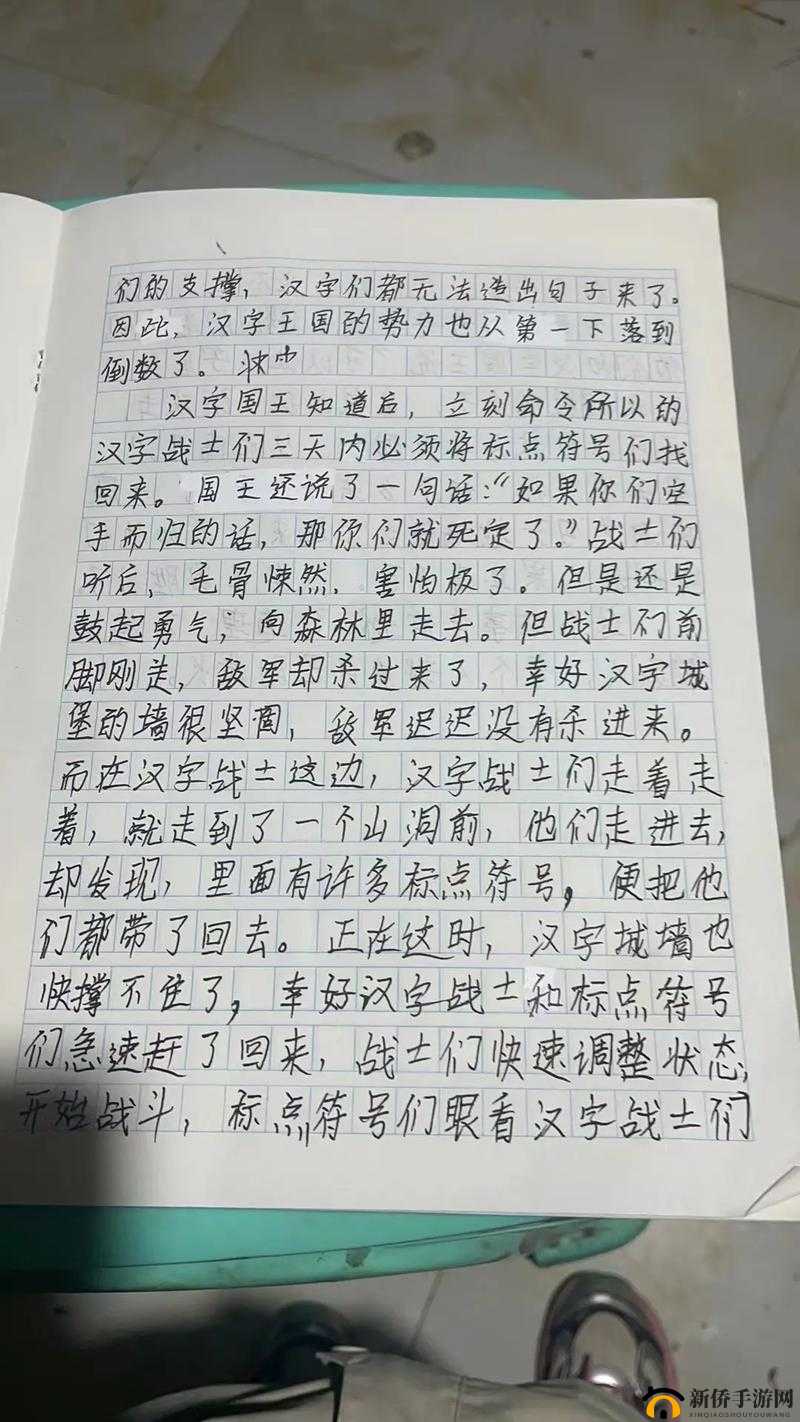 们的支撑，汉字们都无法造出句子来了。
因此，汉字王国的势力也从第一下落到
倒数了。
汉字国王知道后，立刻命令所以的
汉字战士们三天内必须将标点符号们找
回来。国王还说了一句话：“如果你们空
手而归的话，那你们就死定了。”战士们
听后，毛骨悚然，害怕极了。但是还是
鼓起勇气，向森林里走去。但战士们前
脚刚走，敌军却杀过来了，幸好汉字城
堡的墙很坚固，敌军迟迟没有杀进来。
而在汉字战士这边，汉字战士们走着走
着，就走到了一个山洞前，他们走进去，
却发现，里面有许多标点符号，便把他
们都带了回去。正在这时，汉字城墙也
快撑不住了，幸好汉字战士和标点符号
们急速赶了回来，战士们快速调整状态，
开始战斗，标点符号们眼看汉字战士们
新侨手游网
XINQIAOSHOUYOUWANG